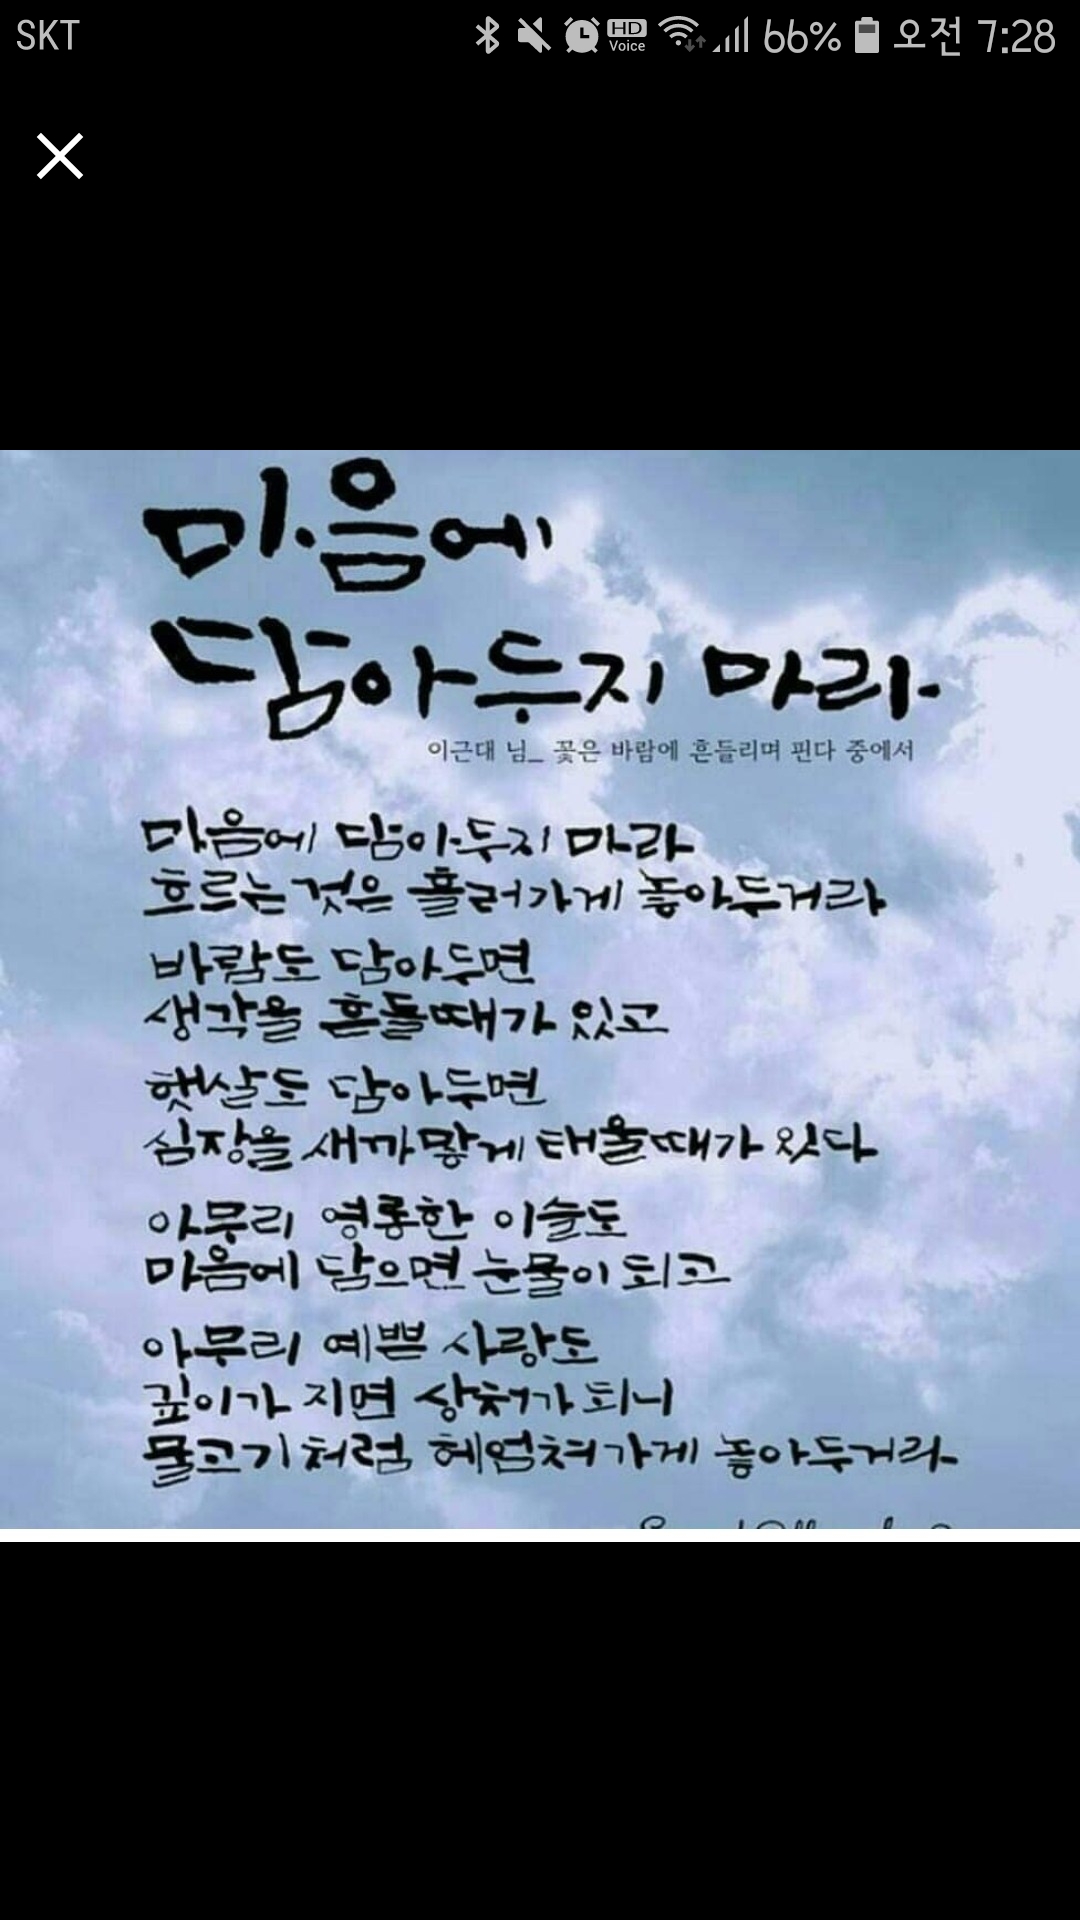 SKT HD Voice 66% 오전 7:28
마음에
담아두지 마라
이근대 님_ 꽃은 바람에 흔들리며 핀다 중에서
마음에 담아두지 마라
흐르는 것은 흘러가게 놓아두거라
바람도 담아두면
생각을 흔들때가 있고
햇살도 담아두면
심장을 새까맣게 태울때가 있다
아무리 영롱한 이슬도
마음에 담으면 눈물이 되고
아무리 예쁜 사랑도
깊이가 지면 상처가 되니
물고기처럼 헤엄쳐가게 놓아두거라